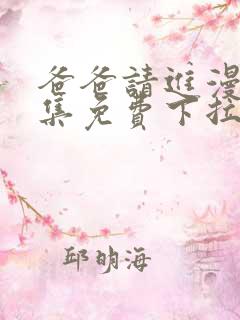 爸爸請進漫
集免費下拉
邱明海